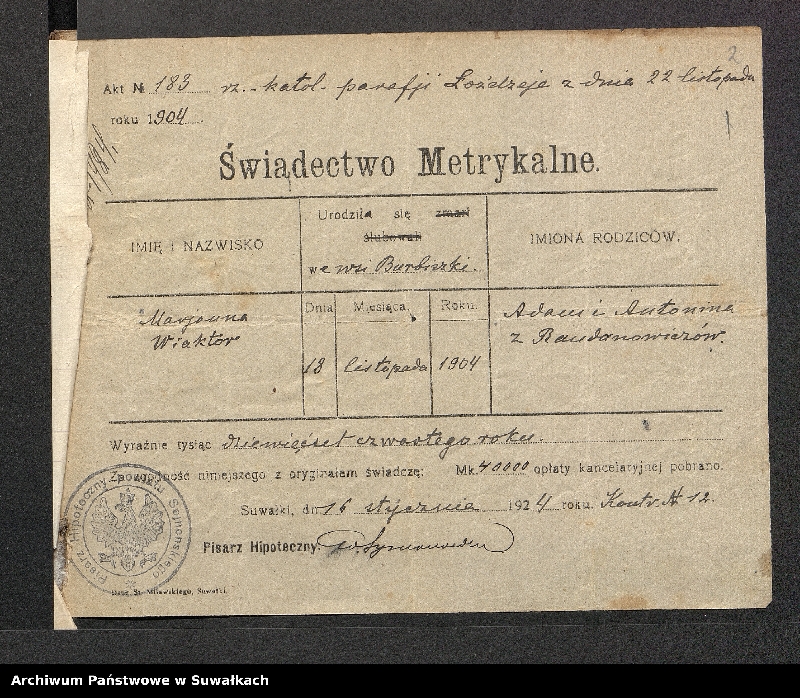 2
Akt № 183 rz.-katol. parafji Łoździeje z dnia 22 listopada
roku 1904
1
Świadectwo Metrykalne.
IMIĘ I NAZWISKO
Urodziła się zmarł
ślubował
we wsi Burbiszki.
IMIONA RODZICÓW.
Marjanna
Wiaktor
Dnia
Miesiąca
Roku
18
listopada
1904
Adam i Antonina
z Raudonowiczów.
Wyraźnie tysiąc dziewięćset czwartego roku.
Zgodność niniejszego z oryginałem świadczę: Mk. 40000 opłaty kancelaryjnej pobrano.
Suwałki, dn. 16 stycznia 1924 roku. Kontr. № 12.
Pisarz Hipoteczny:
Pisarz Hipoteczny Powiatu Sejneńskiego
Druk. St. Milewskiego, Suwałki.
Archiwum Państwowe w Suwałkach